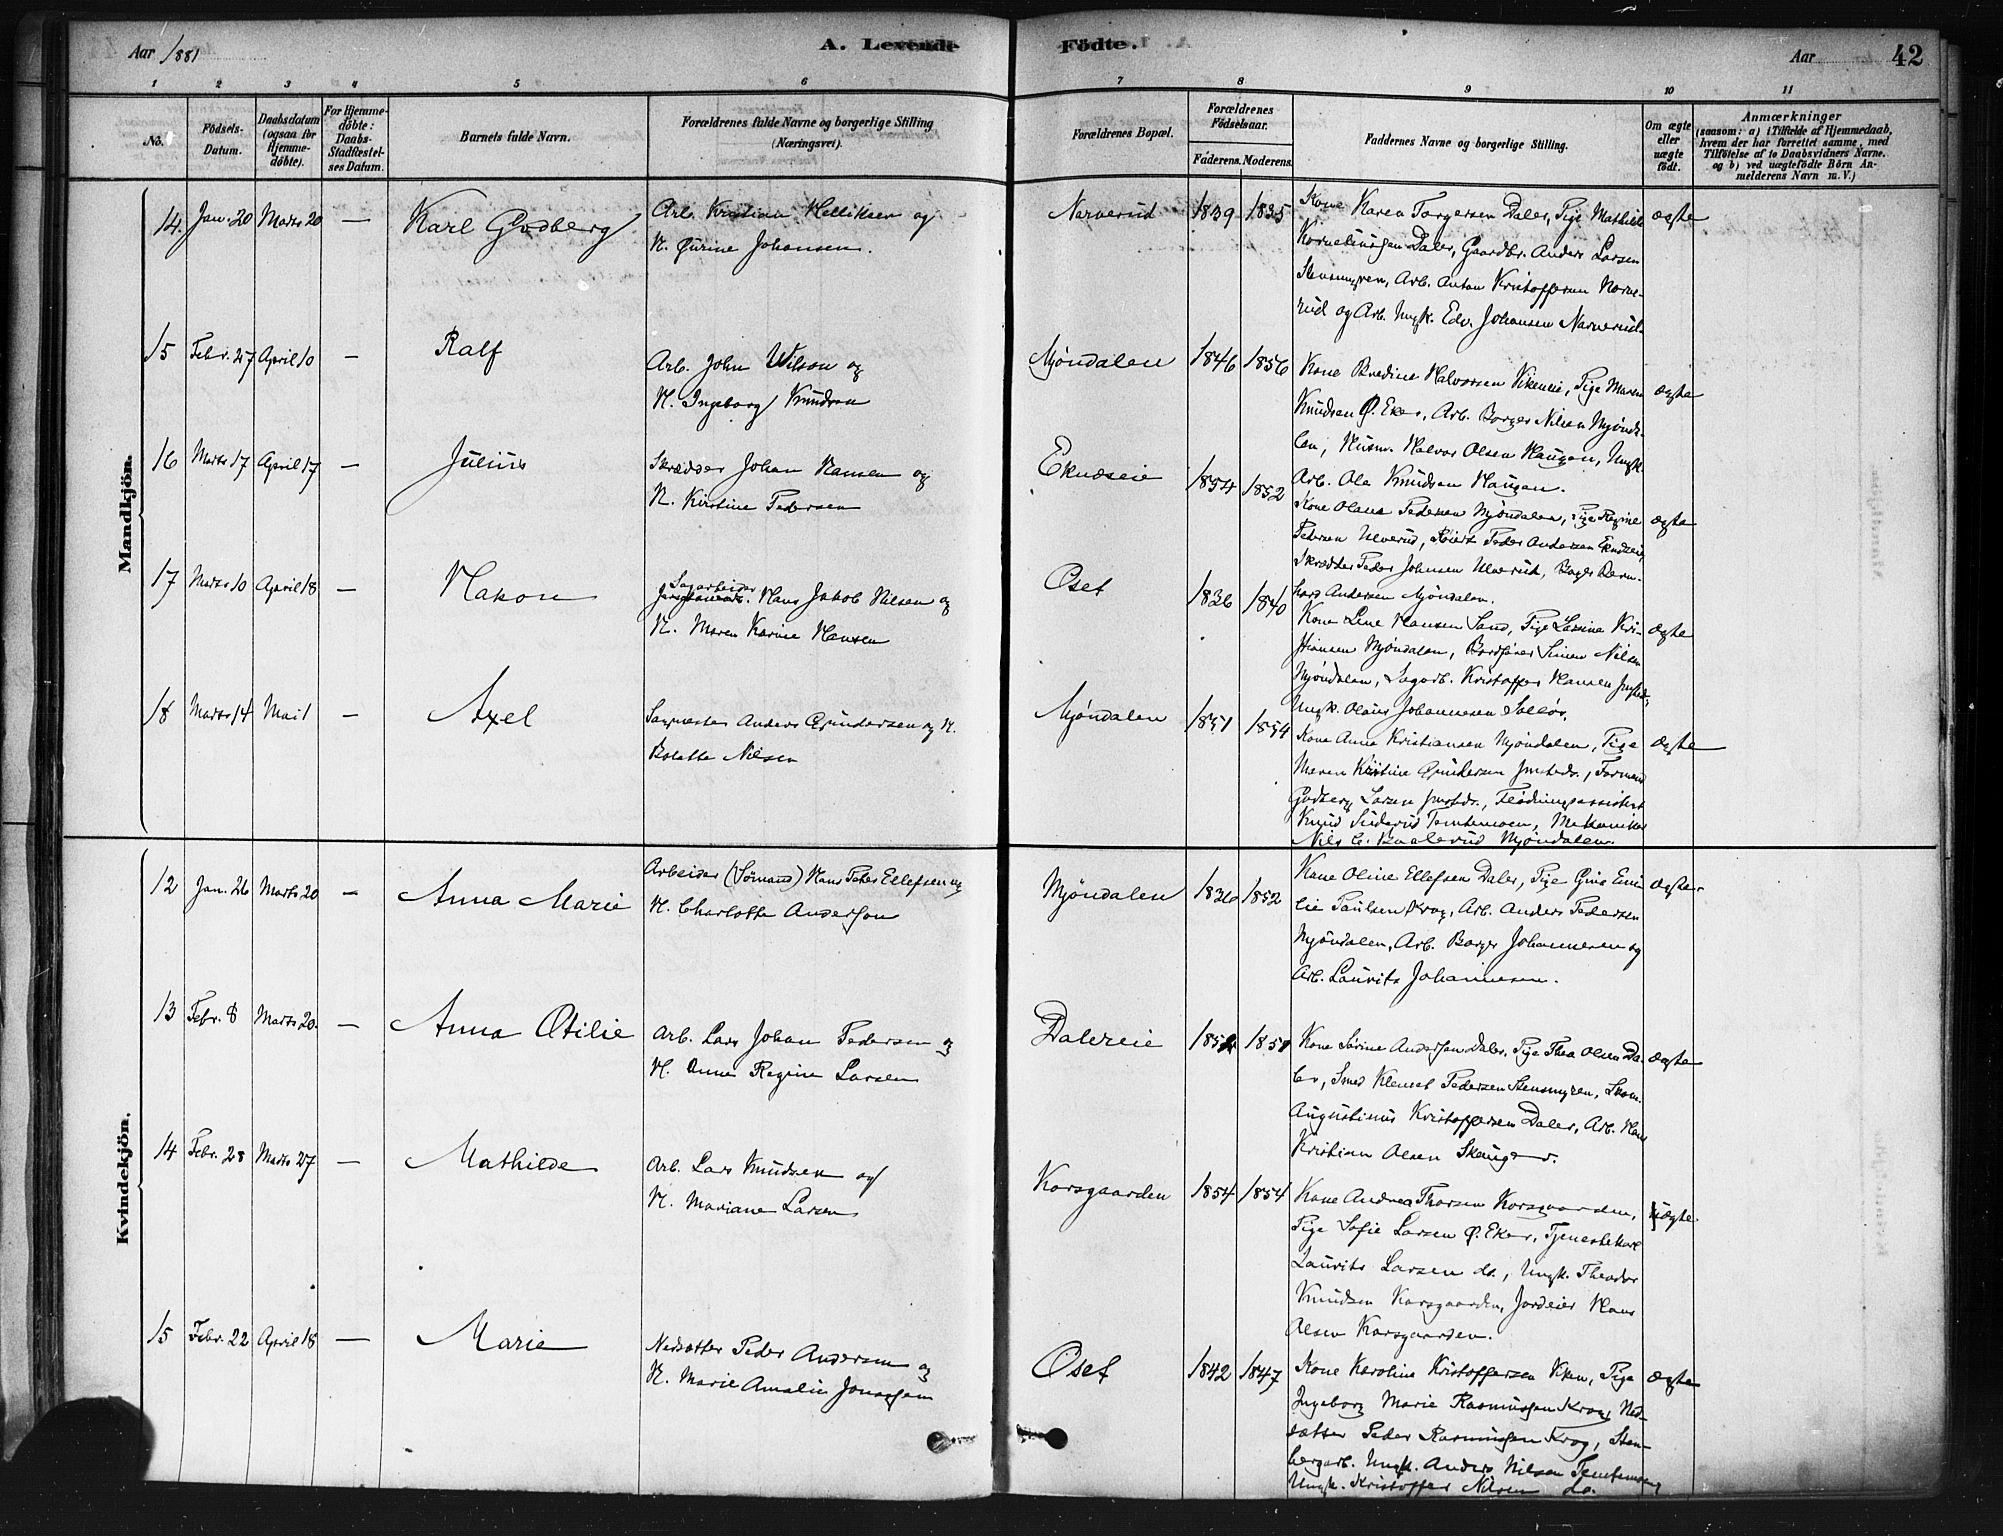 Aar 1881
A. Levende
Födte.
Aar
42
1 2 3 4 5 6 7 8 9 10 11
No.
Födsels-Datum.
Daabsdatum (ogsaa for Hjemmedöbte).
For Hjemmedöbte: Daabs-Stadfæstelses Datum.
Barnets fulde Navn.
Forældrenes fulde Navne og borgerlige Stilling (Næringsvei).
Forældrenes Bopæl.
Forældrenes Födselsaar.
Faderens. Moderens.
Faddernes Navne og borgerlige Stilling.
Om ægte eller uægte födt.
Anmærkninger
(saasom: a) i Tilfælde af Hjemmedaab, hvem der har forrettet samme, med Tilföielse af to Daabsvidners Navne. og b) ved uægtefödte Börn Anmelderens Navn m. V.)
Mandkjön.
14 Jan. 20 Marts 20 — Karl Godberg
Arb. Kristian Helliksen og
H. Gurine Johansen.
Narverud 1839 1835
Kone Karen Torgersen Daler, Pige Mathil
Korneliusen Daler, Gaardbr. Anders Larsen
Stensmyren, Arb. Anton Kristoffersen Narve-
rud og Arb. Ungk. Edv. Johansen Narverud.
ægte
15 Febr. 27 April 10 — Ralf
Arb. John Wilson og
H. Ingeborg Knudsen
Mjøndalen 1846 1856
Kone Bredine Halvorsen Vikeneie, Pige Maren
Knudsen Ø. Eker, Arb. Borger Nilsen Mjønda-
len, Husm. Halvor Olsen Haugen, Ungk.
Arb. Ole Knudsen Haugen.
ægte
16 Marts 17 April 17 — Julius
Skrædder Johan Hansen og
H. Kirstine Pedersen
Eknæseie 1854 1852
Kone Olava Pedersen Mjøndalen, Pige Regine
Pedersen Ulverud, Peder Andersen
Skrædder Peder Johnsen Ulverud, Bager Bern-
hard Andersen Mjøndalen.
ægte
17 Marts 10 April 18 — Hakon
Sagarbeider
Hans Jakob Nilsen og
H. Maren Karine Hansen
Oset 1836 1840
Kone Line Hansen Sand, Pige Lovina Kri-
stiansen Mjøndalen, Bordfører Simen Nilsen
Mjøndalen, Sagarb. Kristoffer Hansen
Ungk. Olaus Johannesen Solløs.
ægte
18 Marts 14 Mai 1 — Axel
Sagmester Anders Gundersen og H.
Bolette Nilsen
Mjøndalen 1851 1854
Kone Anna Kristiansen Mjøndalen, Pige
Maren Kristine Gundersen Formand
Godberg Larsen Flødningsassistent
Knud Suterud Temtemoen, Mekaniker
Nils C. Baalerud Mjøndalen.
ægte
Kvindekjön.
12 Jan. 26 Marts 20 — Anna Marie
Arbeider (Sømand) Hans Peter Ellefsen og
H. Charlotte Anderson
Mjøndalen 1836 1852
Kone Oline Ellefsen Daler, Pige Gina Emi-
lie Paulsen Krog, Arb. Anders Pedersen
Mjøndalen, Arb. Borger Johannesen og
Arb. Laurits Johannesen.
ægte
13 Febr. 8 Marts 20. — Anna Otilie
Arb. Lars Johan Pedersen og
H. Anne Regine Larsen
Dalereie 1851
Kone Sørine Andersen Daler, Pige Thea Olsen Da-
ler, Smed Klemet Pedersen Stensmyren, Skom.
Augustinus Kristoffersen Daler, Arb. Hans
Kristian Olsen Skauger.
ægte
14 Febr. 28 Marts 27 — Mathilde
Arb. Lars Knudsen og
H. Mariane Larsen
Korsgaarden 1854 1854
Kone Andrea Thorsen Korsgaarden,
Pige Sofie Larsen Ø. Eker, Tjenestekarl
Laurits Larsen do., Ungk. Theodor
Knudsen Korsgaarden, Jordeier Hans
Olsen Korsgaarden.
ægte.
15 Febr. 22 April 18 — Marie
Nedsætter Peder Andersen og
H. Marie Amalie Jonassen
Oset 1842 1847
Kone Karoline Kristoffersen Viken, Pige
Ingeborg Marie Rasmussen Krog, Ned-
sætter Peder Rasmussen Krog, Sten-
bergarb. Ungk. Anders Nilsen Temtemoen
Ungk. Kristoffer Nilsen do.
ægte